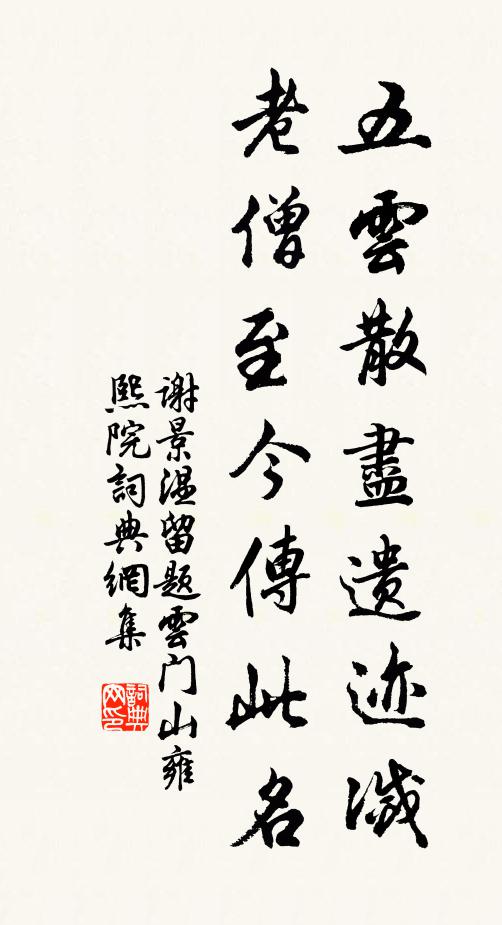 五雲散盡遺迹滅
老僧至今傳此名
謝景温留題雲门山雍
熙院詞典網集
詞典网印